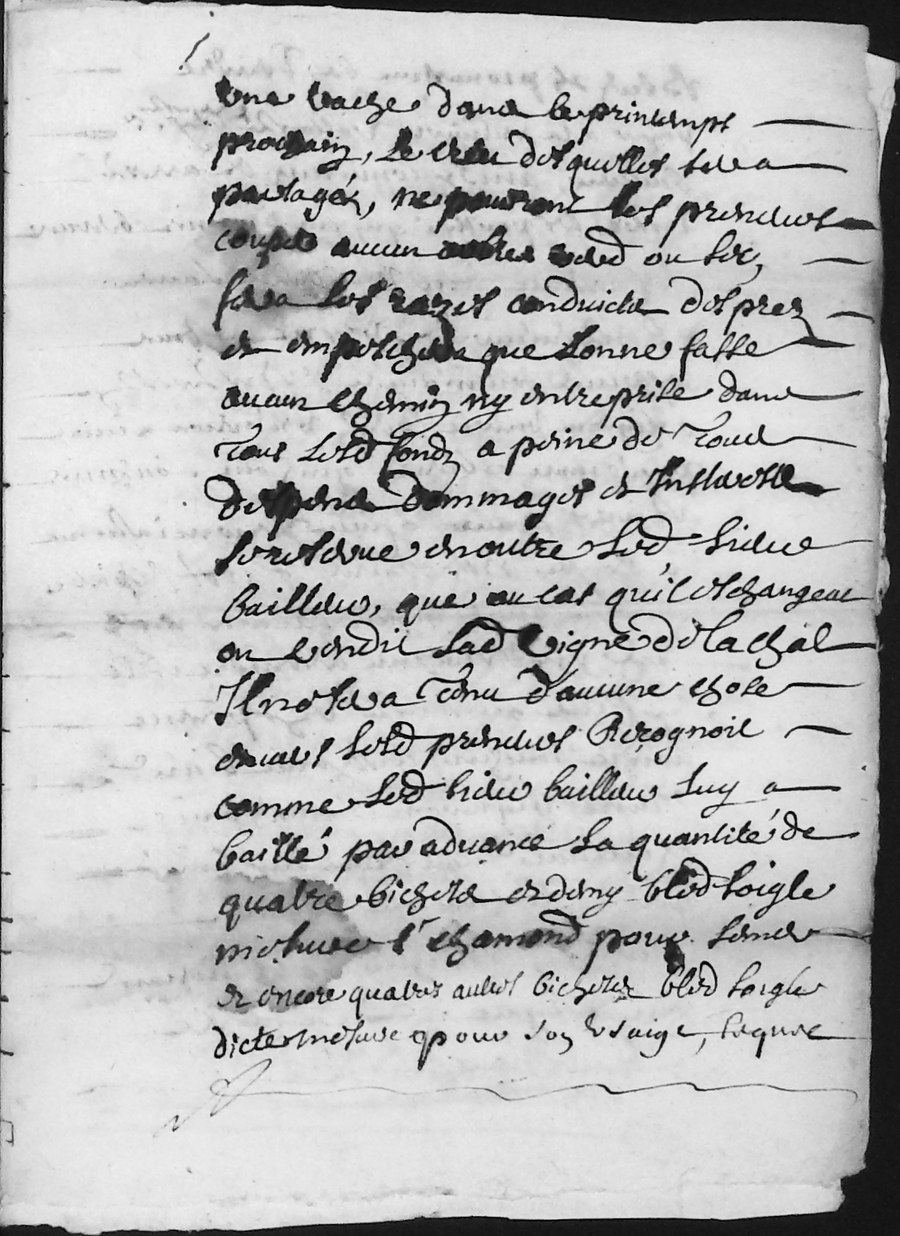 une vache dans le printemps
prochain, le creu desquelles sera
partagér, ne pourront les preneurs
couper aucun arbres verd ou sec,
fera les razes conduicte des prez
et empeschera que lonne fasse
aucun chemin ny entreprise dans
tous lesd fondz a peine de tous
despens dommages et interestz
sereserve enoutre led sieur
bailleur, que au cas qu'il eschangeat
ou vendit lad vigne de lachal
Il ne sera tenu d'aucune chose
envers lesd preneurs Recognoit
comme led sieur bailleur luy a
baillé par advance la quantité de
quatre bichets et demy bled soigle
mesure st chamond pour semer
et encore quatres autres bichets bled soigle
dicte mesure pour son usaige, lequel